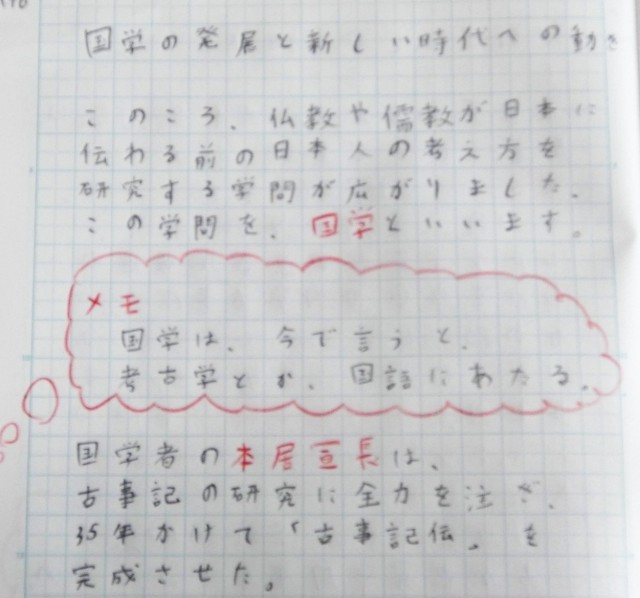 国学の発展と新しい時代への動き
このころ、仏教や儒教が日本に
伝わる前の日本人の考え方を
研究する学問が広がりました。
この学問を、国学といいます。
メモ
国学は、今で言うと、
考古学とか、国語にあたる。
国学者の本居宣長は、
古事記の研究に全力を注ぎ、
35年かけて「古事記伝」を
完成させた。